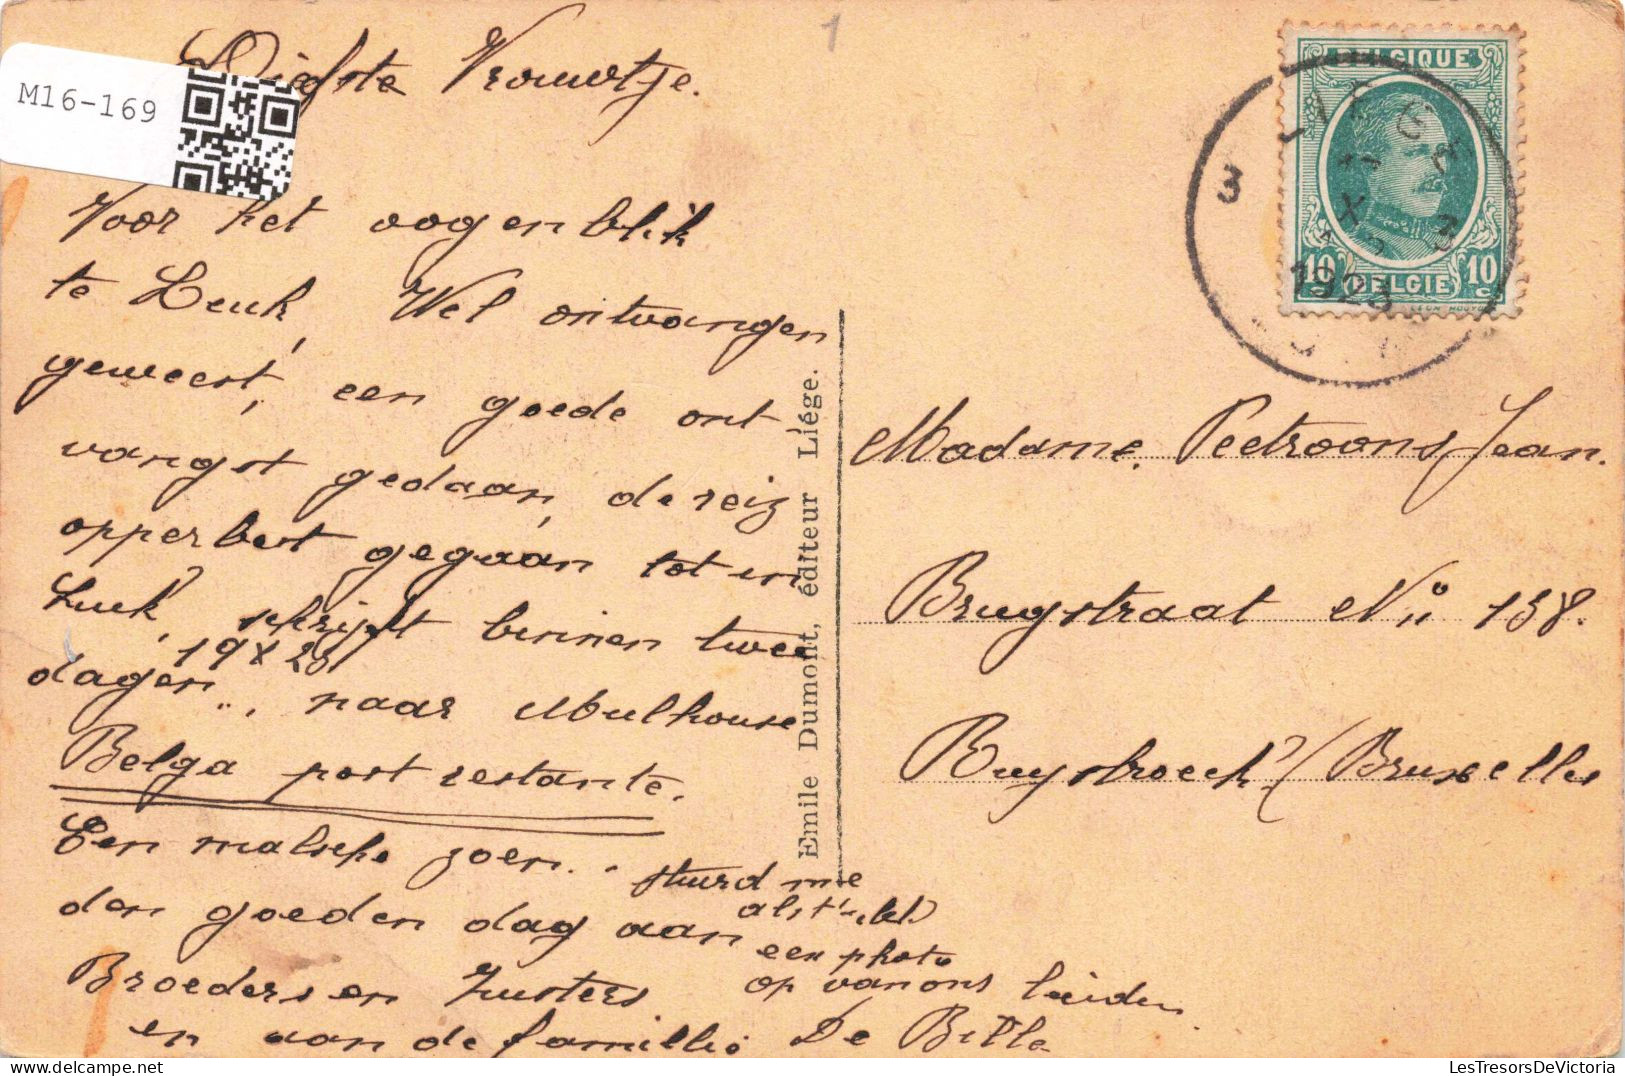 M16-169
1
Liefste Vrouwtje.
Voor het oogenblik
te Leuk, Wel ontvangen
geweest, een goede ont-
vangst gedaan, de reiz
opperbest gegaan tot in
Luik, schrijft binnen twee
19 X 23
dagen naar Mulhouse
Belga post restante.
Een malsche zoen.
den goeden dag aan
Broeders en Zusters
en aan de familie De Bille
stuurd me
als't
een photo
op van ons beiden
Emile Dumont, éditeur Liége.
BELGIQUE
10 BELGIE 10
3 3
1923
Madame. Peetroons Jean.
Brugstraat No 138.
Ruysbroeck (Bruxelles
www.LesTresorsDeVictoria.com